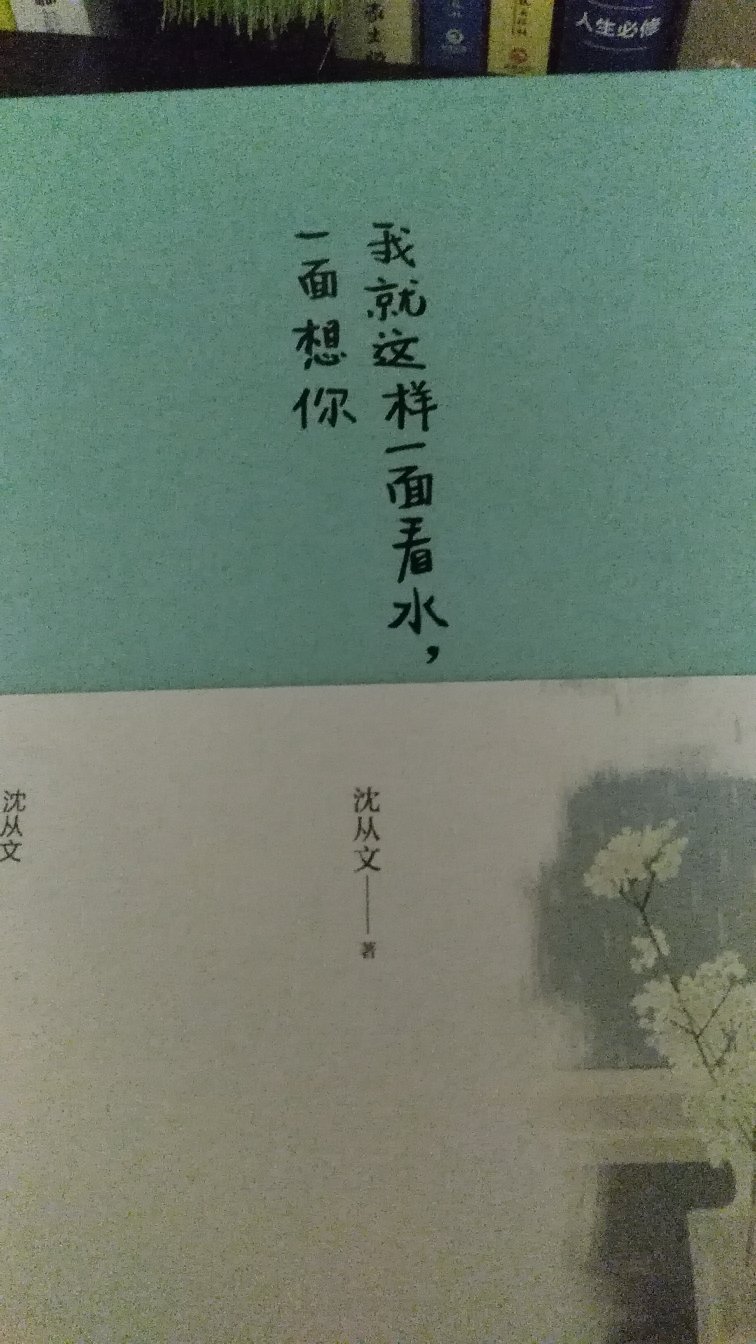 我就这样一面看水，
一面想你
沈从文——著
沈从文
人生必修